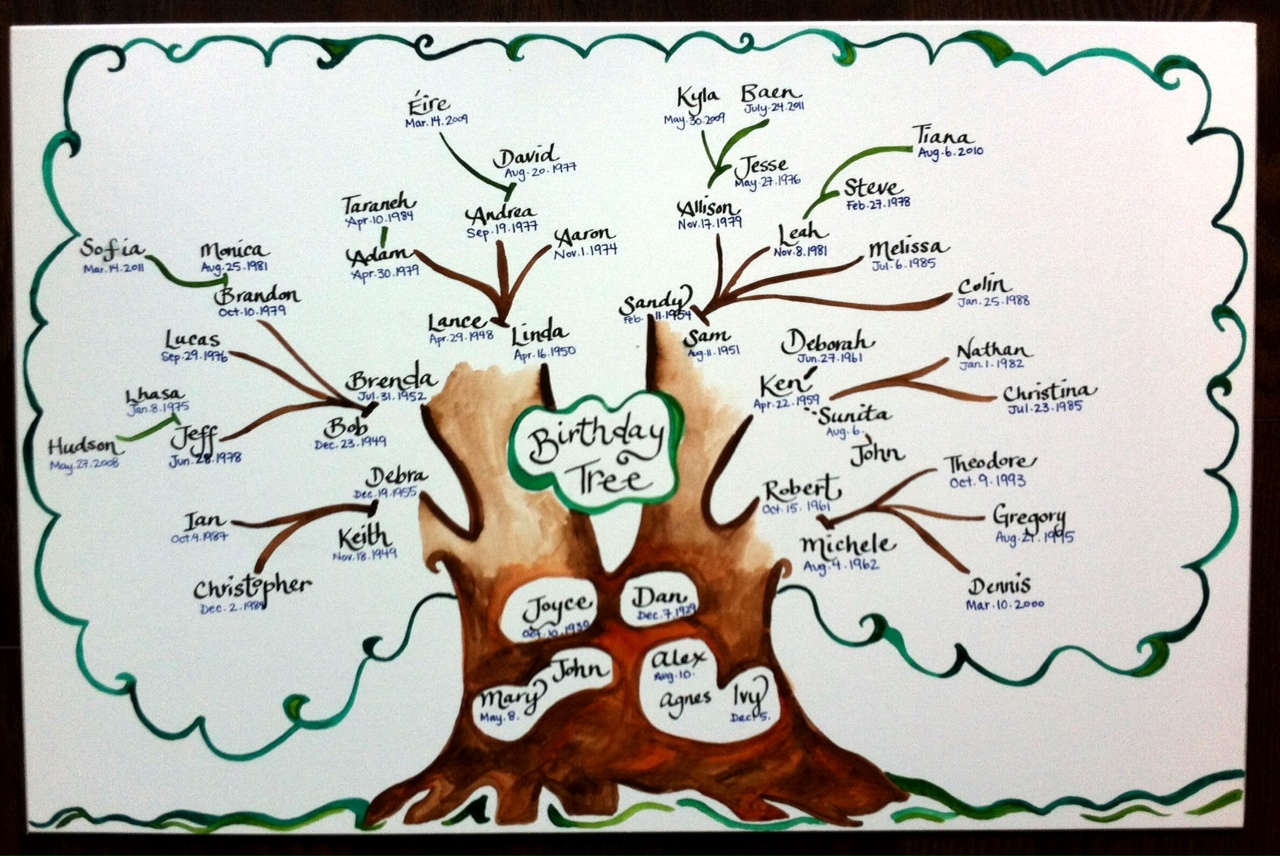 Éire
Mar. 14. 2009
David
Aug. 20. 1977
Taraneh
Apr. 10. 1984
Andrea
Sep. 19. 1977
Adam
Apr. 30. 1979
Aaron
Nov. 1. 1974
Lance
Apr. 29. 1948
Linda
Apr. 16. 1950
Sofia
Mar. 14. 2011
Monica
Aug. 25. 1981
Brandon
Oct. 10. 1979
Lucas
Sep. 29. 1976
Lhasa
Jan. 8. 1975
Hudson
May. 27. 2008
Jeff
Jun. 28. 1978
Brenda
Jul. 31. 1952
Bob
Dec. 23. 1949
Debra
Dec. 19. 1955
Ian
Oct. 4. 1987
Keith
Nov. 18. 1949
Christopher
Dec. 2.
Kyla
May. 30. 2009
Baen
July. 24. 2011
Jesse
May. 27. 1976
Tiana
Aug. 6. 2010
Steve
Feb. 27. 1978
Allison
Nov. 17. 1979
Leah
Nov. 8. 1981
Melissa
Jul. 6. 1985
Colin
Jan. 25. 1988
Sandy
Feb. 11. 1954
Sam
Aug. 11. 1951
Deborah
Jun. 27. 1961
Ken
Apr. 22. 1959
Sunita
Aug. 6.
Nathan
Jan. 1. 1982
Christina
Jul. 23. 1985
John
Robert
Oct. 15. 1961
Michele
Aug. 9. 1962
Theodore
Oct. 9. 1993
Gregory
Aug. 27. 1995
Dennis
Mar. 10. 2000
Birthday
Tree
Joyce
Oct. 10.
Dan
Dec. 7. 1929
John
Mary
May. 8.
Alex
Aug. 10.
Agnes
Ivy
Dec. 5.